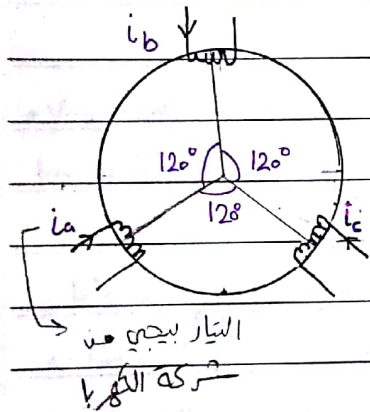 i_b
120° 120°
120
i_a
i_c
التيار بيجي من
شركة الكهربا